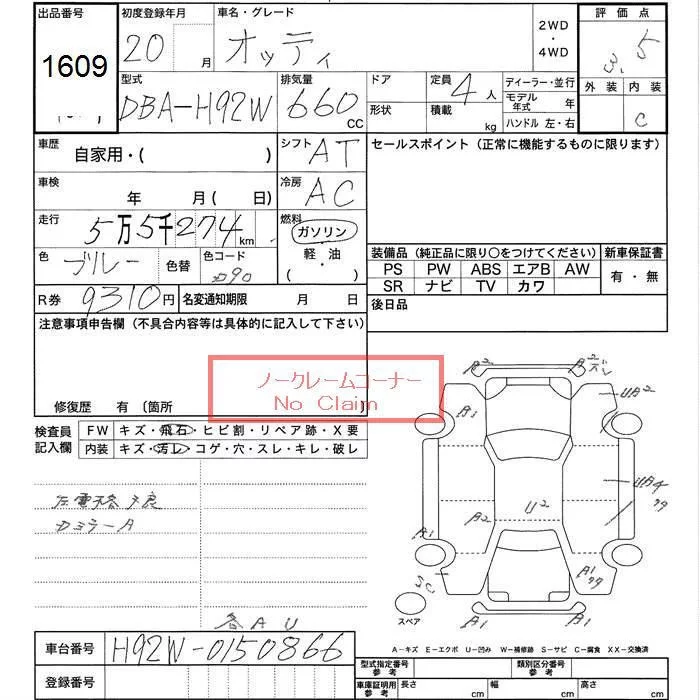 出品番号 初度登録年月 車名・グレード 2WD・4WD 評価点
1609 20月 オッティ 3.5
型式 排気量 ドア 定員 ディーラー・並行 外装 内装
DBA-H92W 660cc 形状 4人 積載 kg モデル年式 年 ハンドル 左・右 C
車歴 自家用・( ) シフト AT セールスポイント(正常に機能するものに限ります)
車検 年 月( 日) 冷房 AC
走行 5万5千274km 燃料 ガソリン
色 ブルー 色替 色コード 軽・油 ( )
装備品(純正品に限り○をつけてください) 新車保証書
PS PW ABS エアB AW 有・無
SR ナビ TV カワ
R券 9310円 名変通知期限 月 日 後日品
注意事項申告欄(不具合内容等は具体的に記入して下さい)
ノークレームコーナー
No Claim
修復歴 有 〔箇所
検査員記入欄 FW キズ・飛石・ヒビ割・リペア跡・X要
内装 キズ・汚レ・コゲ・穴・スレ・キレ・破レ
A2 A2
A1 UA2
U2 UA4
A2
A1 A1
SC
スペア A1 A1
各AU
A-キズ E-エクボ U-凹み W-補修跡 S-サビ C-腐食 XX-交換済
車台番号 H92W-0150866
登録番号
型式指定番号 参考 類別区分番号 参考
車庫証明用 参考 長さ cm 幅 cm 高さ cm